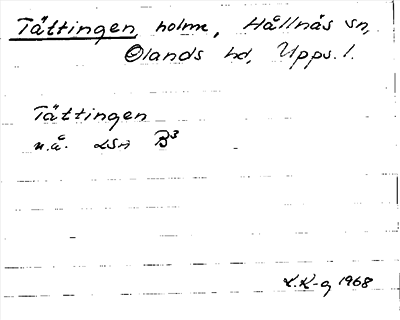 Tättingen, holme, Hållnäs sn,
Olands hd, Upps. l.
Tättingen
n.å. LSA B³
L.K-g 1968